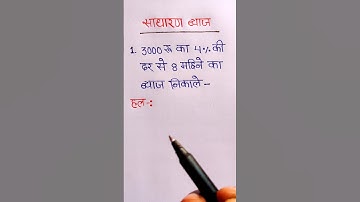 साधारण ब्याज
1. 3000 रू का 4% की
दर से 8 महिने का
ब्याज निकाले -
हल -: